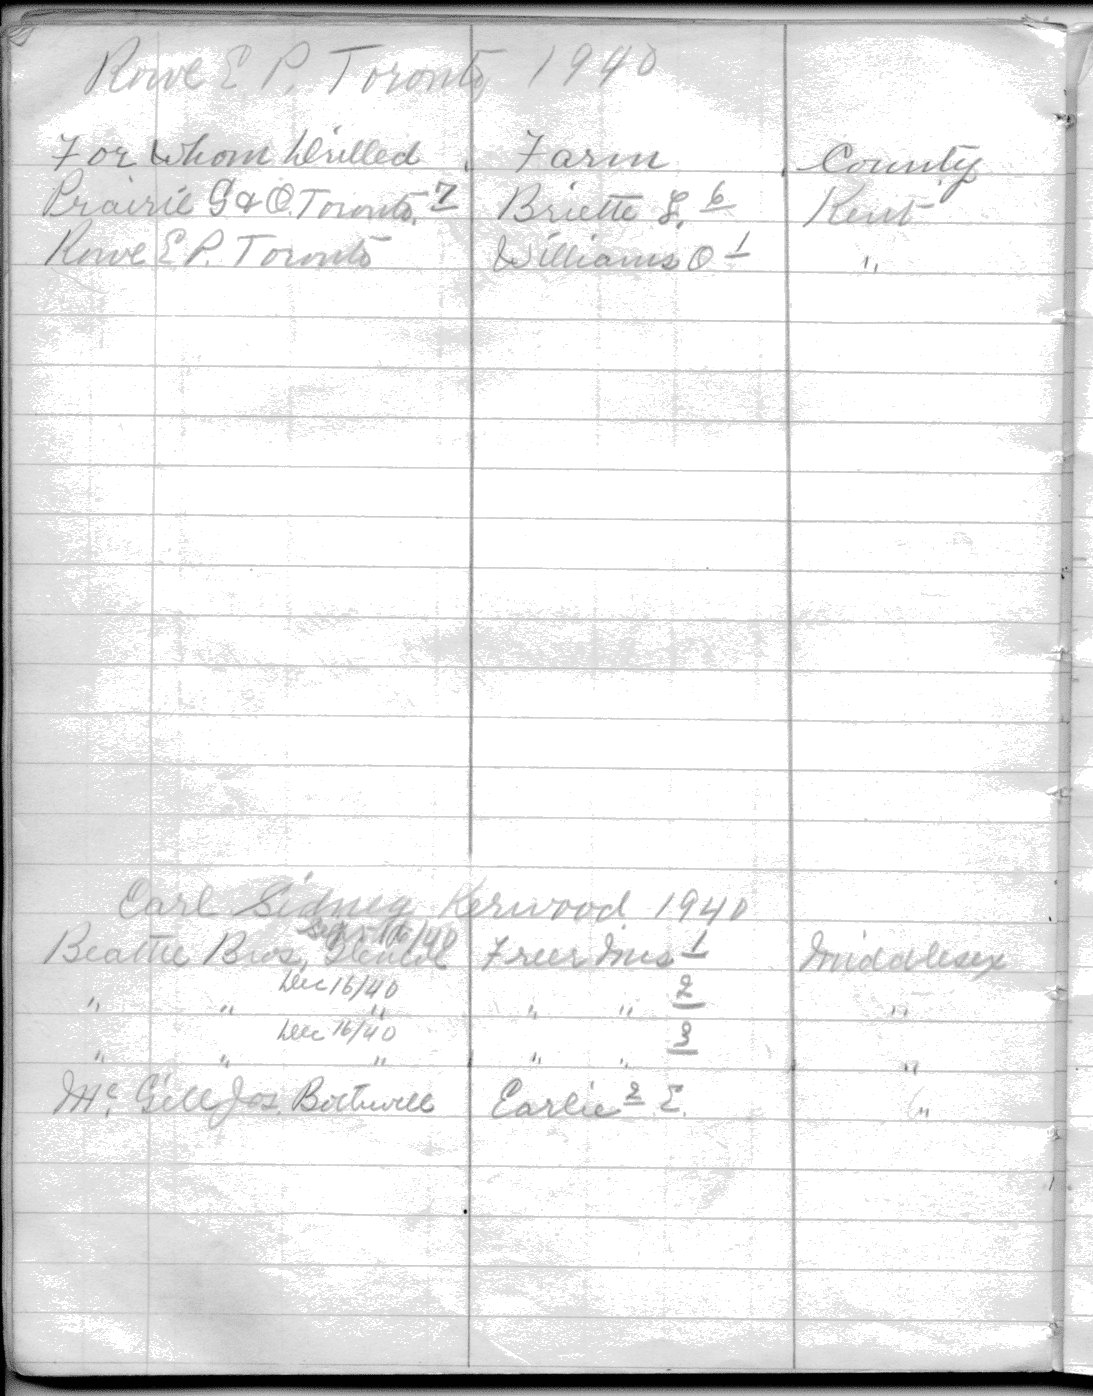 Rowe E P. Toronto 1940
For Whom Drilled Farm County
Prairie G & O. Toronto. 7 Briette L. 6 Kent
Rowe E P. Toronto Williams O 1 "
Carl Sidney Kerwood 1940
/40
Beattie Bros. Glencoe Freer Mrs 1 Middlesex
Dec 16/40
" " " " " 2 "
Dec 16/40
" " " " " 3 "
Mc. Gill Jos. Bothwell Earlie 2 E. "